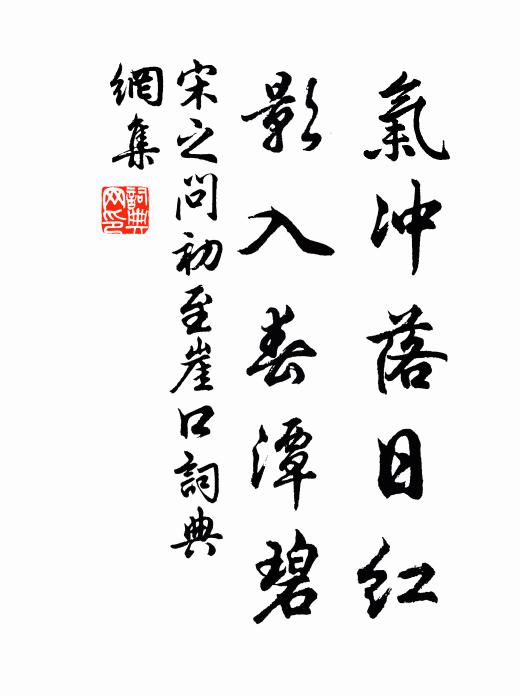 氣冲落日紅
影入春潭碧
宋之問初至崖口詞典
網集
詞典
网印